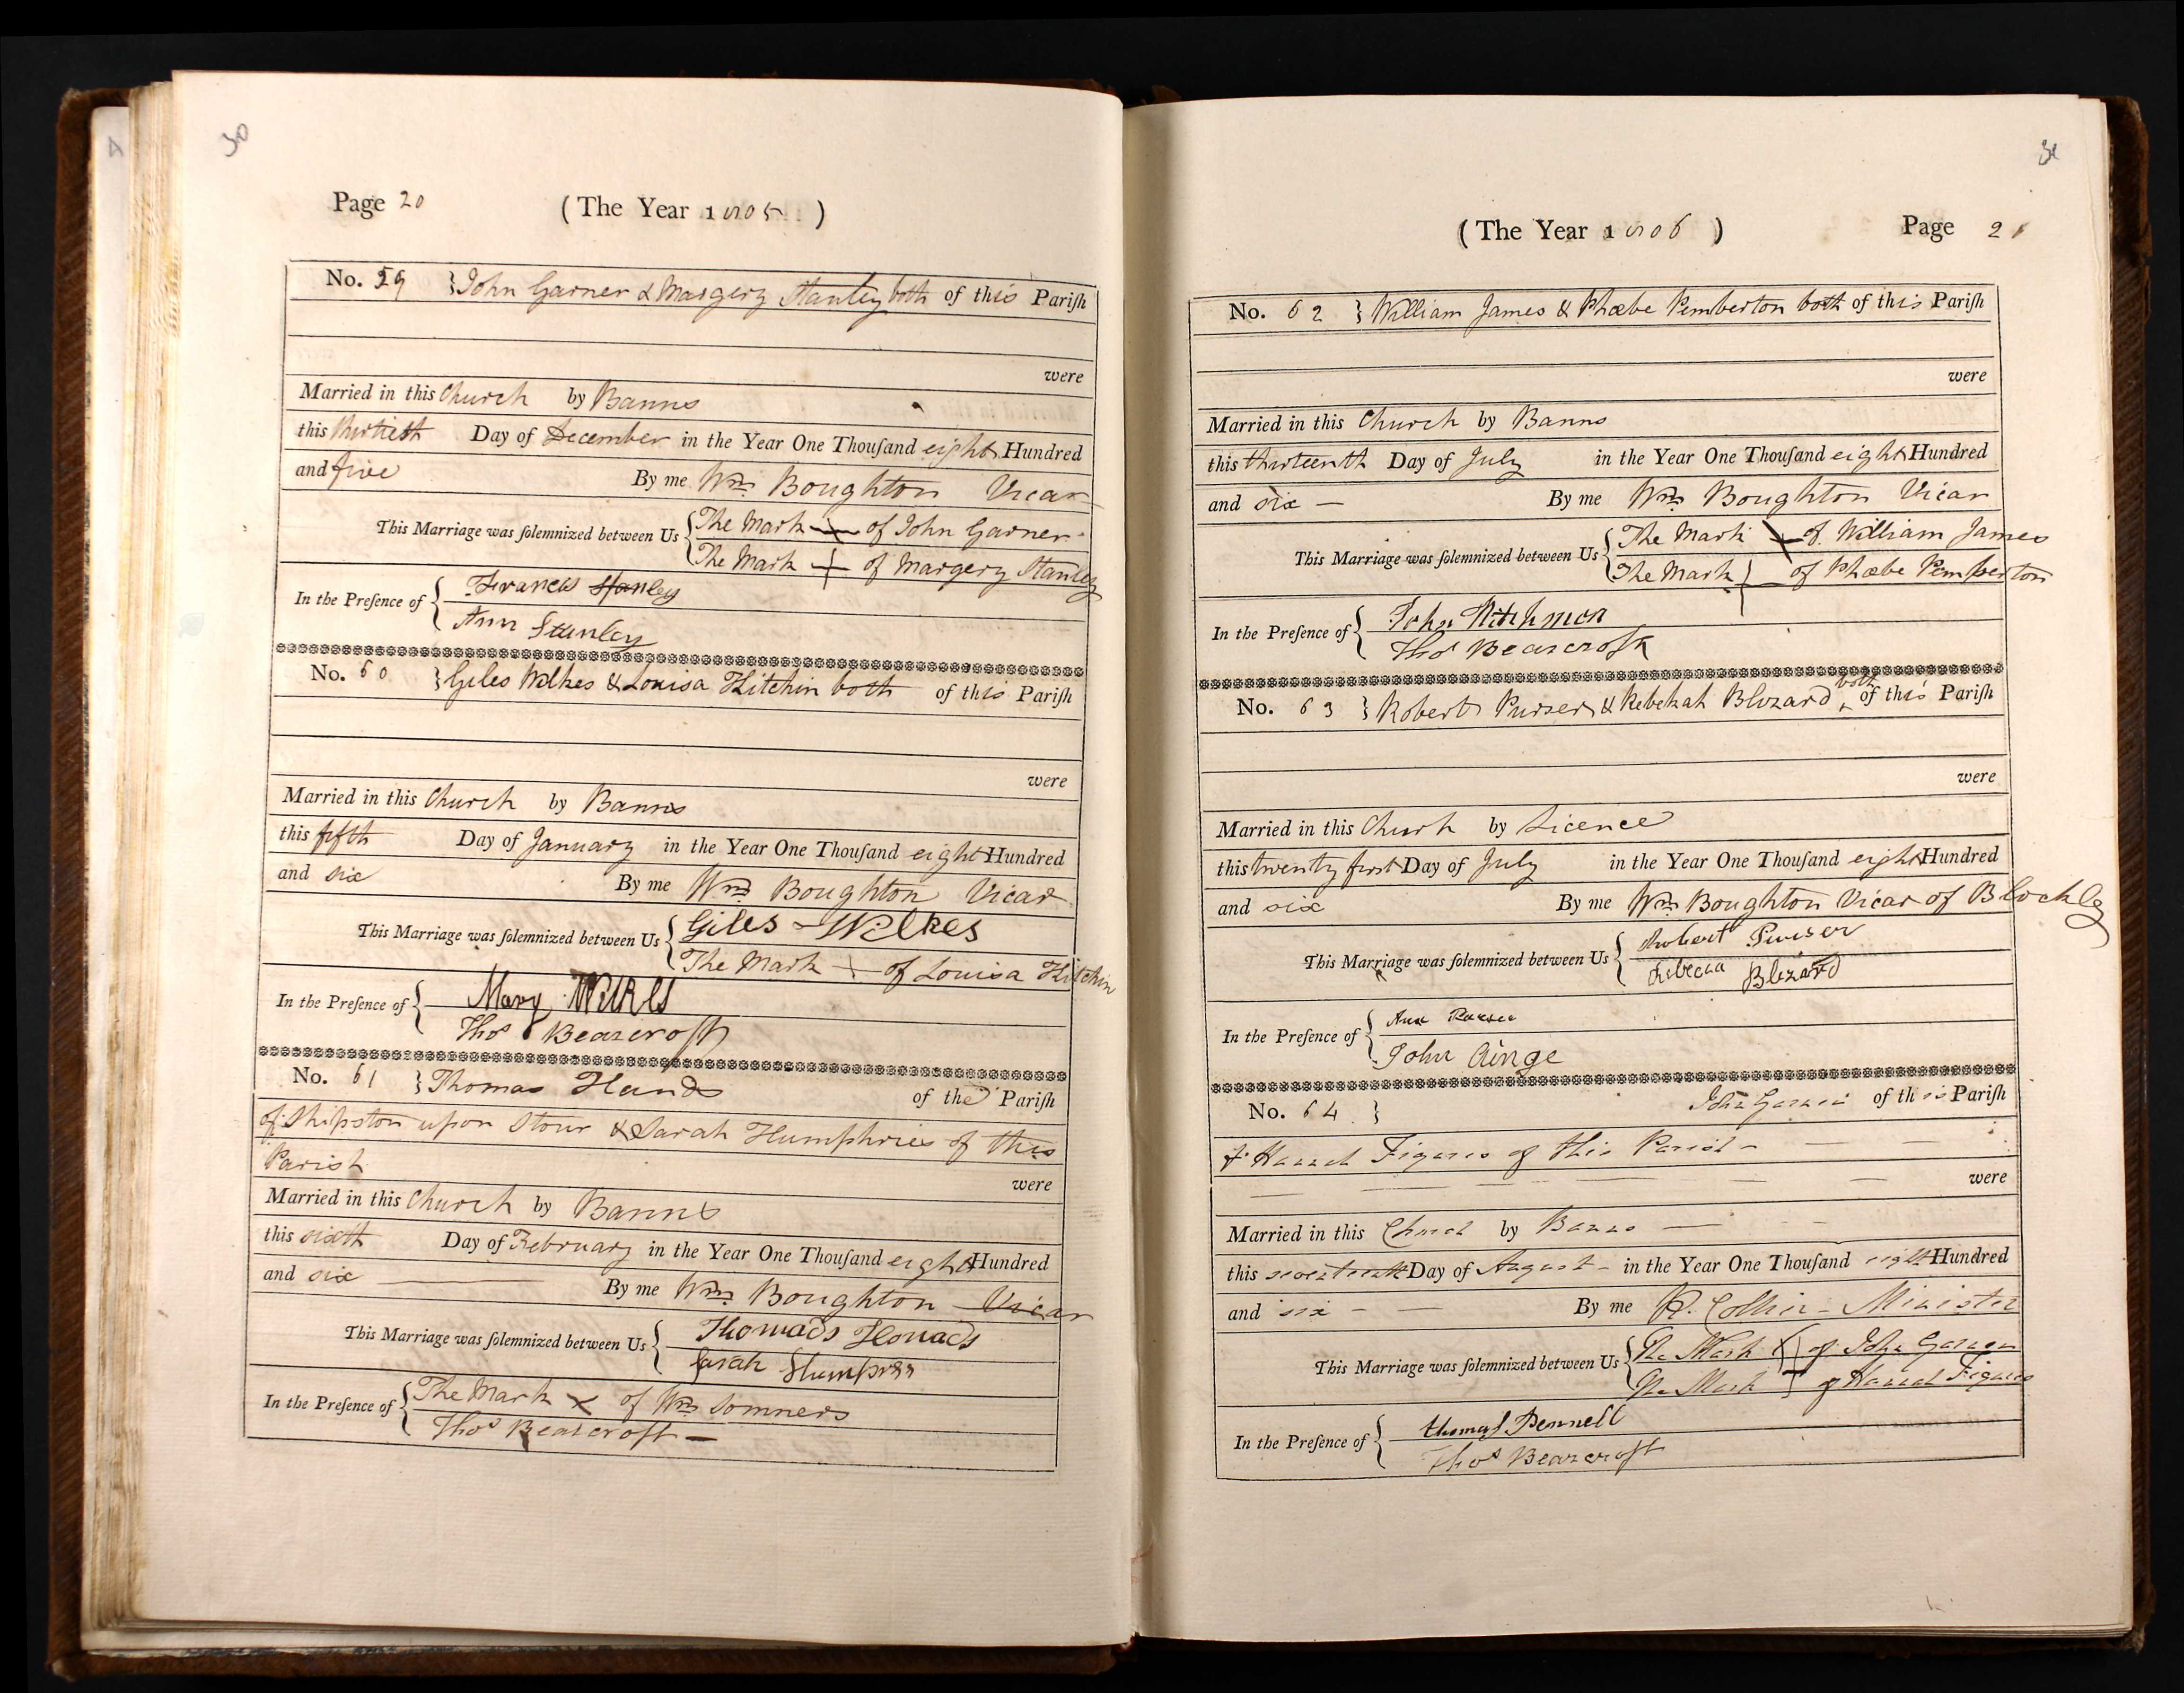 30
Page 20 (The Year 1805)
No. 59 } John Garner & Margery Stanley both of this Pariſh
were
Married in this Church by Banns
this thirtieth Day of December in the Year One Thouſand eight Hundred
and five By me Wm Boughton Vicar
This Marriage was ſolemnized between Us { The Mark + of John Garner
The Mark + of Margery Stanley
In the Preſence of { Francis Stanley
Ann Stanley
No. 60 } Giles Wilkes & Louisa Hitchin both of this Pariſh
were
Married in this Church by Banns
this fifth Day of January in the Year One Thouſand eight Hundred
and six By me Wm Boughton Vicar
This Marriage was ſolemnized between Us { Giles Wilkes
The Mark + of Louisa Hitchin
In the Preſence of { Mary Wilkes
Thos Bearcroft
No. 61 } Thomas Hands of the Pariſh
of Shipston upon Stour & Sarah Humphries of this
Parish
were
Married in this Church by Banns
this sixth Day of February in the Year One Thouſand eight Hundred
and six — By me Wm Boughton Vicar
This Marriage was ſolemnized between Us { Thomads Honads
Sarah
In the Preſence of { The Mark x of Wm Somners
Thos Bearcroft —
31
(The Year 1806) Page 21
No. 62 } William James & Phœbe Pemberton both of this Pariſh
were
Married in this Church by Banns
this thirteenth Day of July in the Year One Thouſand eight Hundred
and six — By me Wm Boughton Vicar
This Marriage was ſolemnized between Us { The Mark x of William James
The Mark + of Phœbe Pemberton
In the Preſence of { John
Thos Bearcroft
No. 63 } Robert Purser & Rebekah Blizard both of this Pariſh
were
Married in this Church by Licence
this twenty first Day of July in the Year One Thouſand eight Hundred
and six By me Wm Boughton Vicar of Blockley
This Marriage was ſolemnized between Us { Robert Purser
Rebecca Blizard
In the Preſence of { Ann Purser
John Ainge
No. 64 } John Garner of this Pariſh
& Hannah Figures of this Parish —
were
Married in this Church by Banns —
this seventeenth Day of August — in the Year One Thouſand eight Hundred
and six — By me R. Collier — Minister
This Marriage was ſolemnized between Us { The Mark X of John Garner
The Mark + of Hannah Figures
In the Preſence of { thomas Pennell
Thos Bearcroft